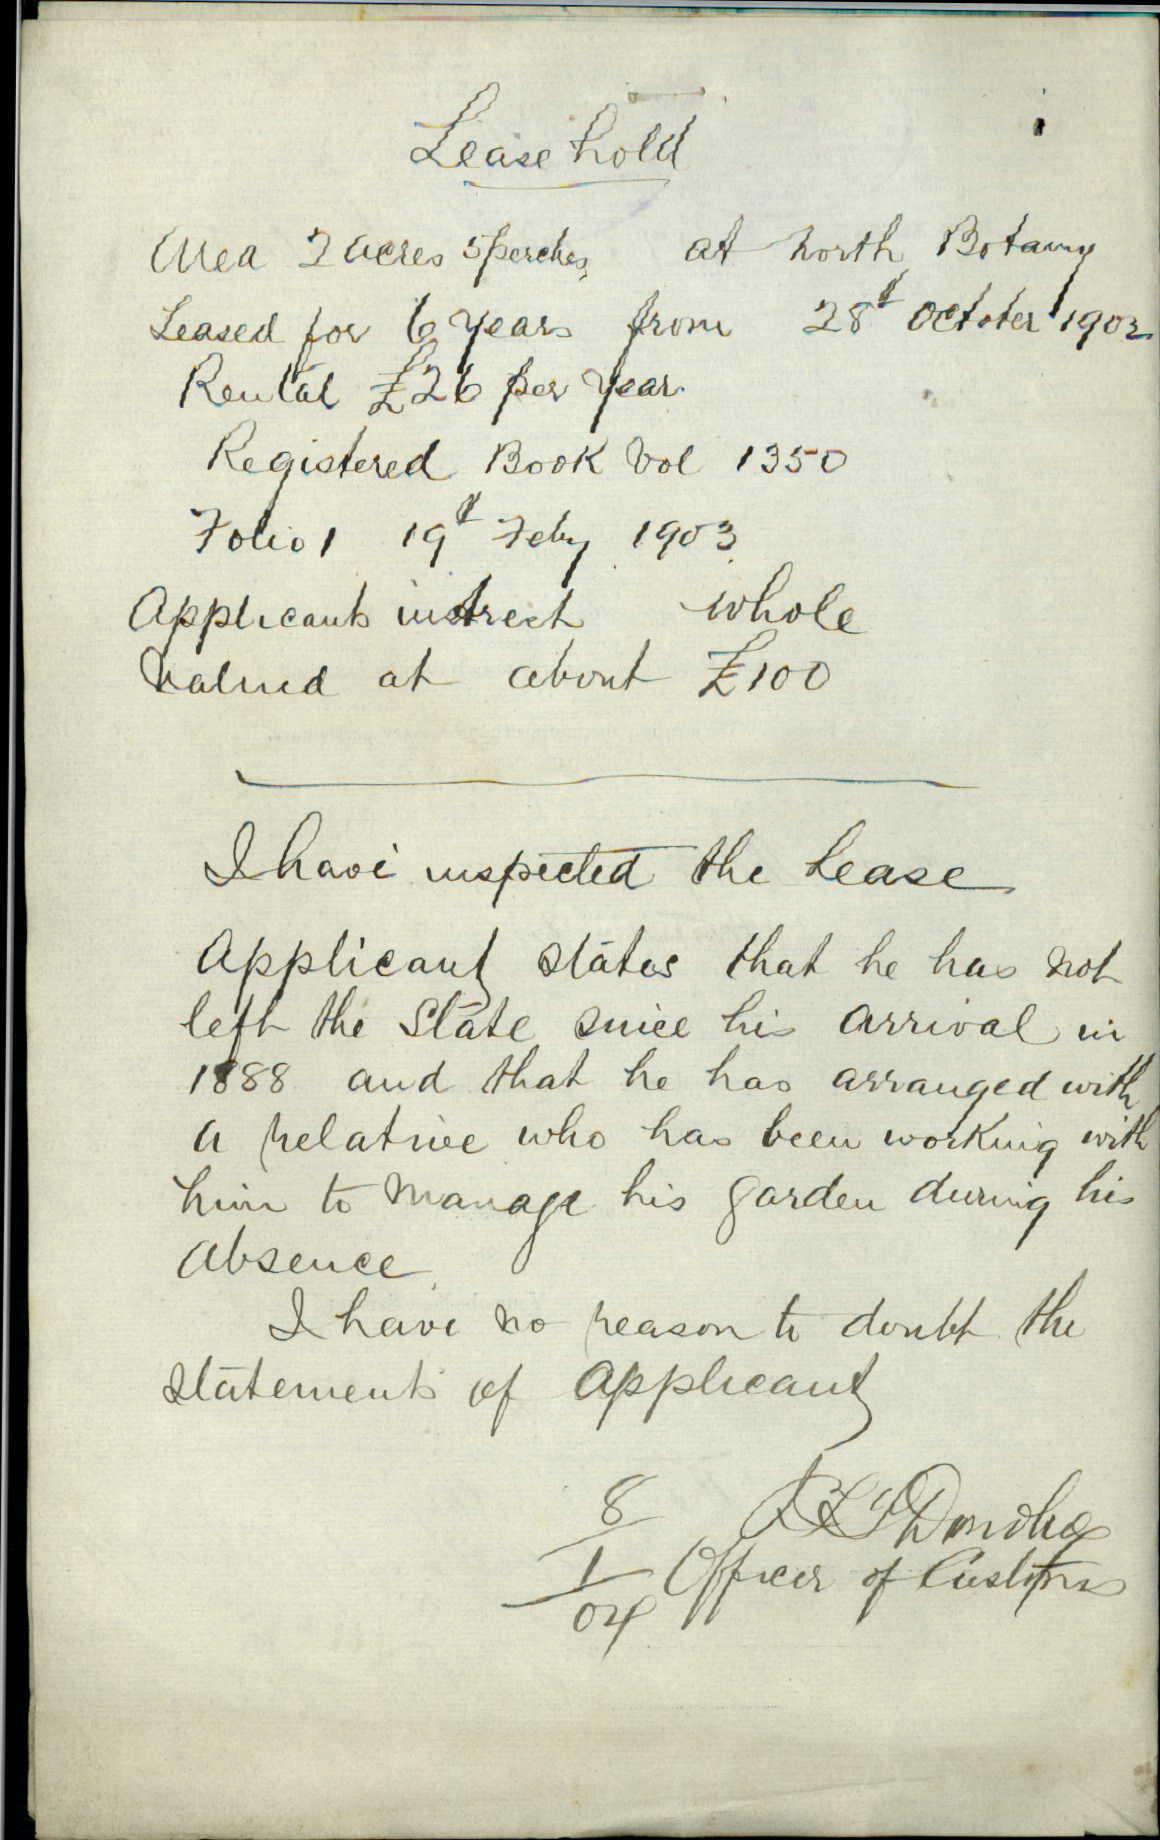 Leasehold
Area 2 acres 5 perches at North Botany
Leased for 6 years from 28th October 1902
Rental £26 per year
Registered Book Vol 1350
Folio 1 19th Feby 1903
Applicants interest whole
Valued at about £100
I have inspected the Lease
Applicant states that he has not
left the State since his arrival in
1888 and that he has arranged with
a relative who has been working with
him to manage his garden during his
absence
I have no reason to doubt the
statements of applicant
8 Donohoe
1 Officer of Customs
04